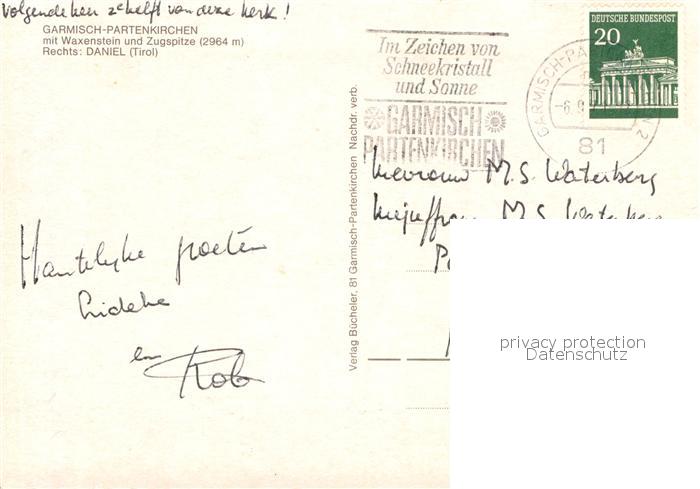 Volgende keer zelf van deze kerk!
GARMISCH-PARTENKIRCHEN
mit Waxenstein und Zugspitze (2964 m)
Rechts: DANIEL (Tirol)
Hartelyke groeten
en
Rob
Verlag Bücheler, 81 Garmisch-Partenkirchen Nachdr. verb.
Im Zeichen von
Schneekristall
und Sonne
GARMISCH
PARTENKIRCHEN
DEUTSCHE BUNDESPOST
20
GARMISCH-PA
81
Mevrouw M.S. Waterberg
Mejuffrouw M.S.
privacy protection
Datenschutz